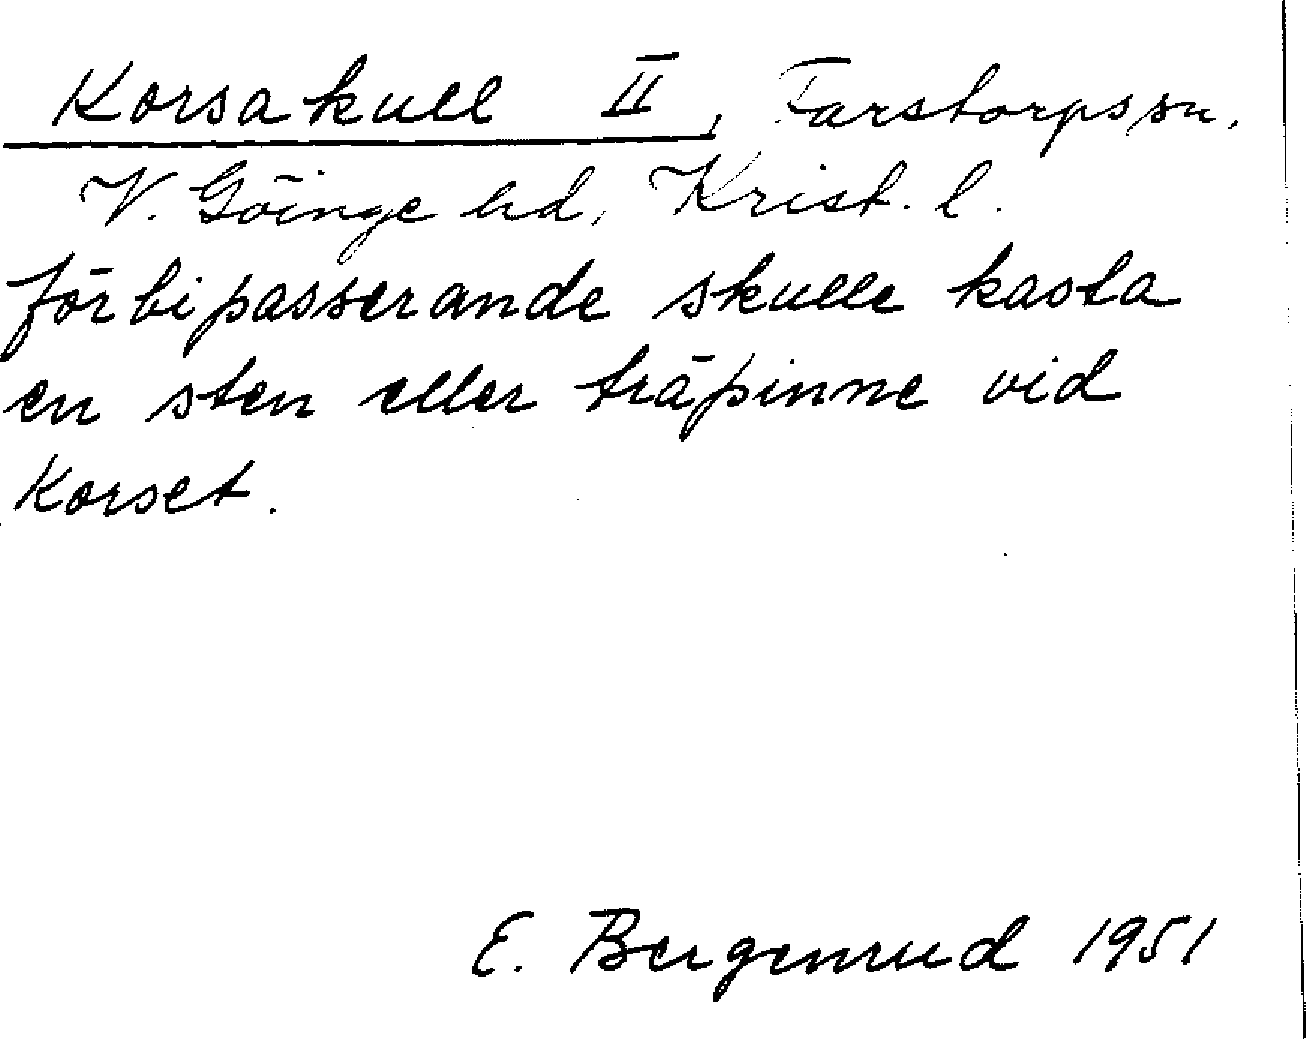 Korsakull II, Farstorps sn,
V. Göinge hd, Krist. l.
förbipasserande skulle kasta
en sten eller träpinne vid
Korset.
E. Bergenrud 1951